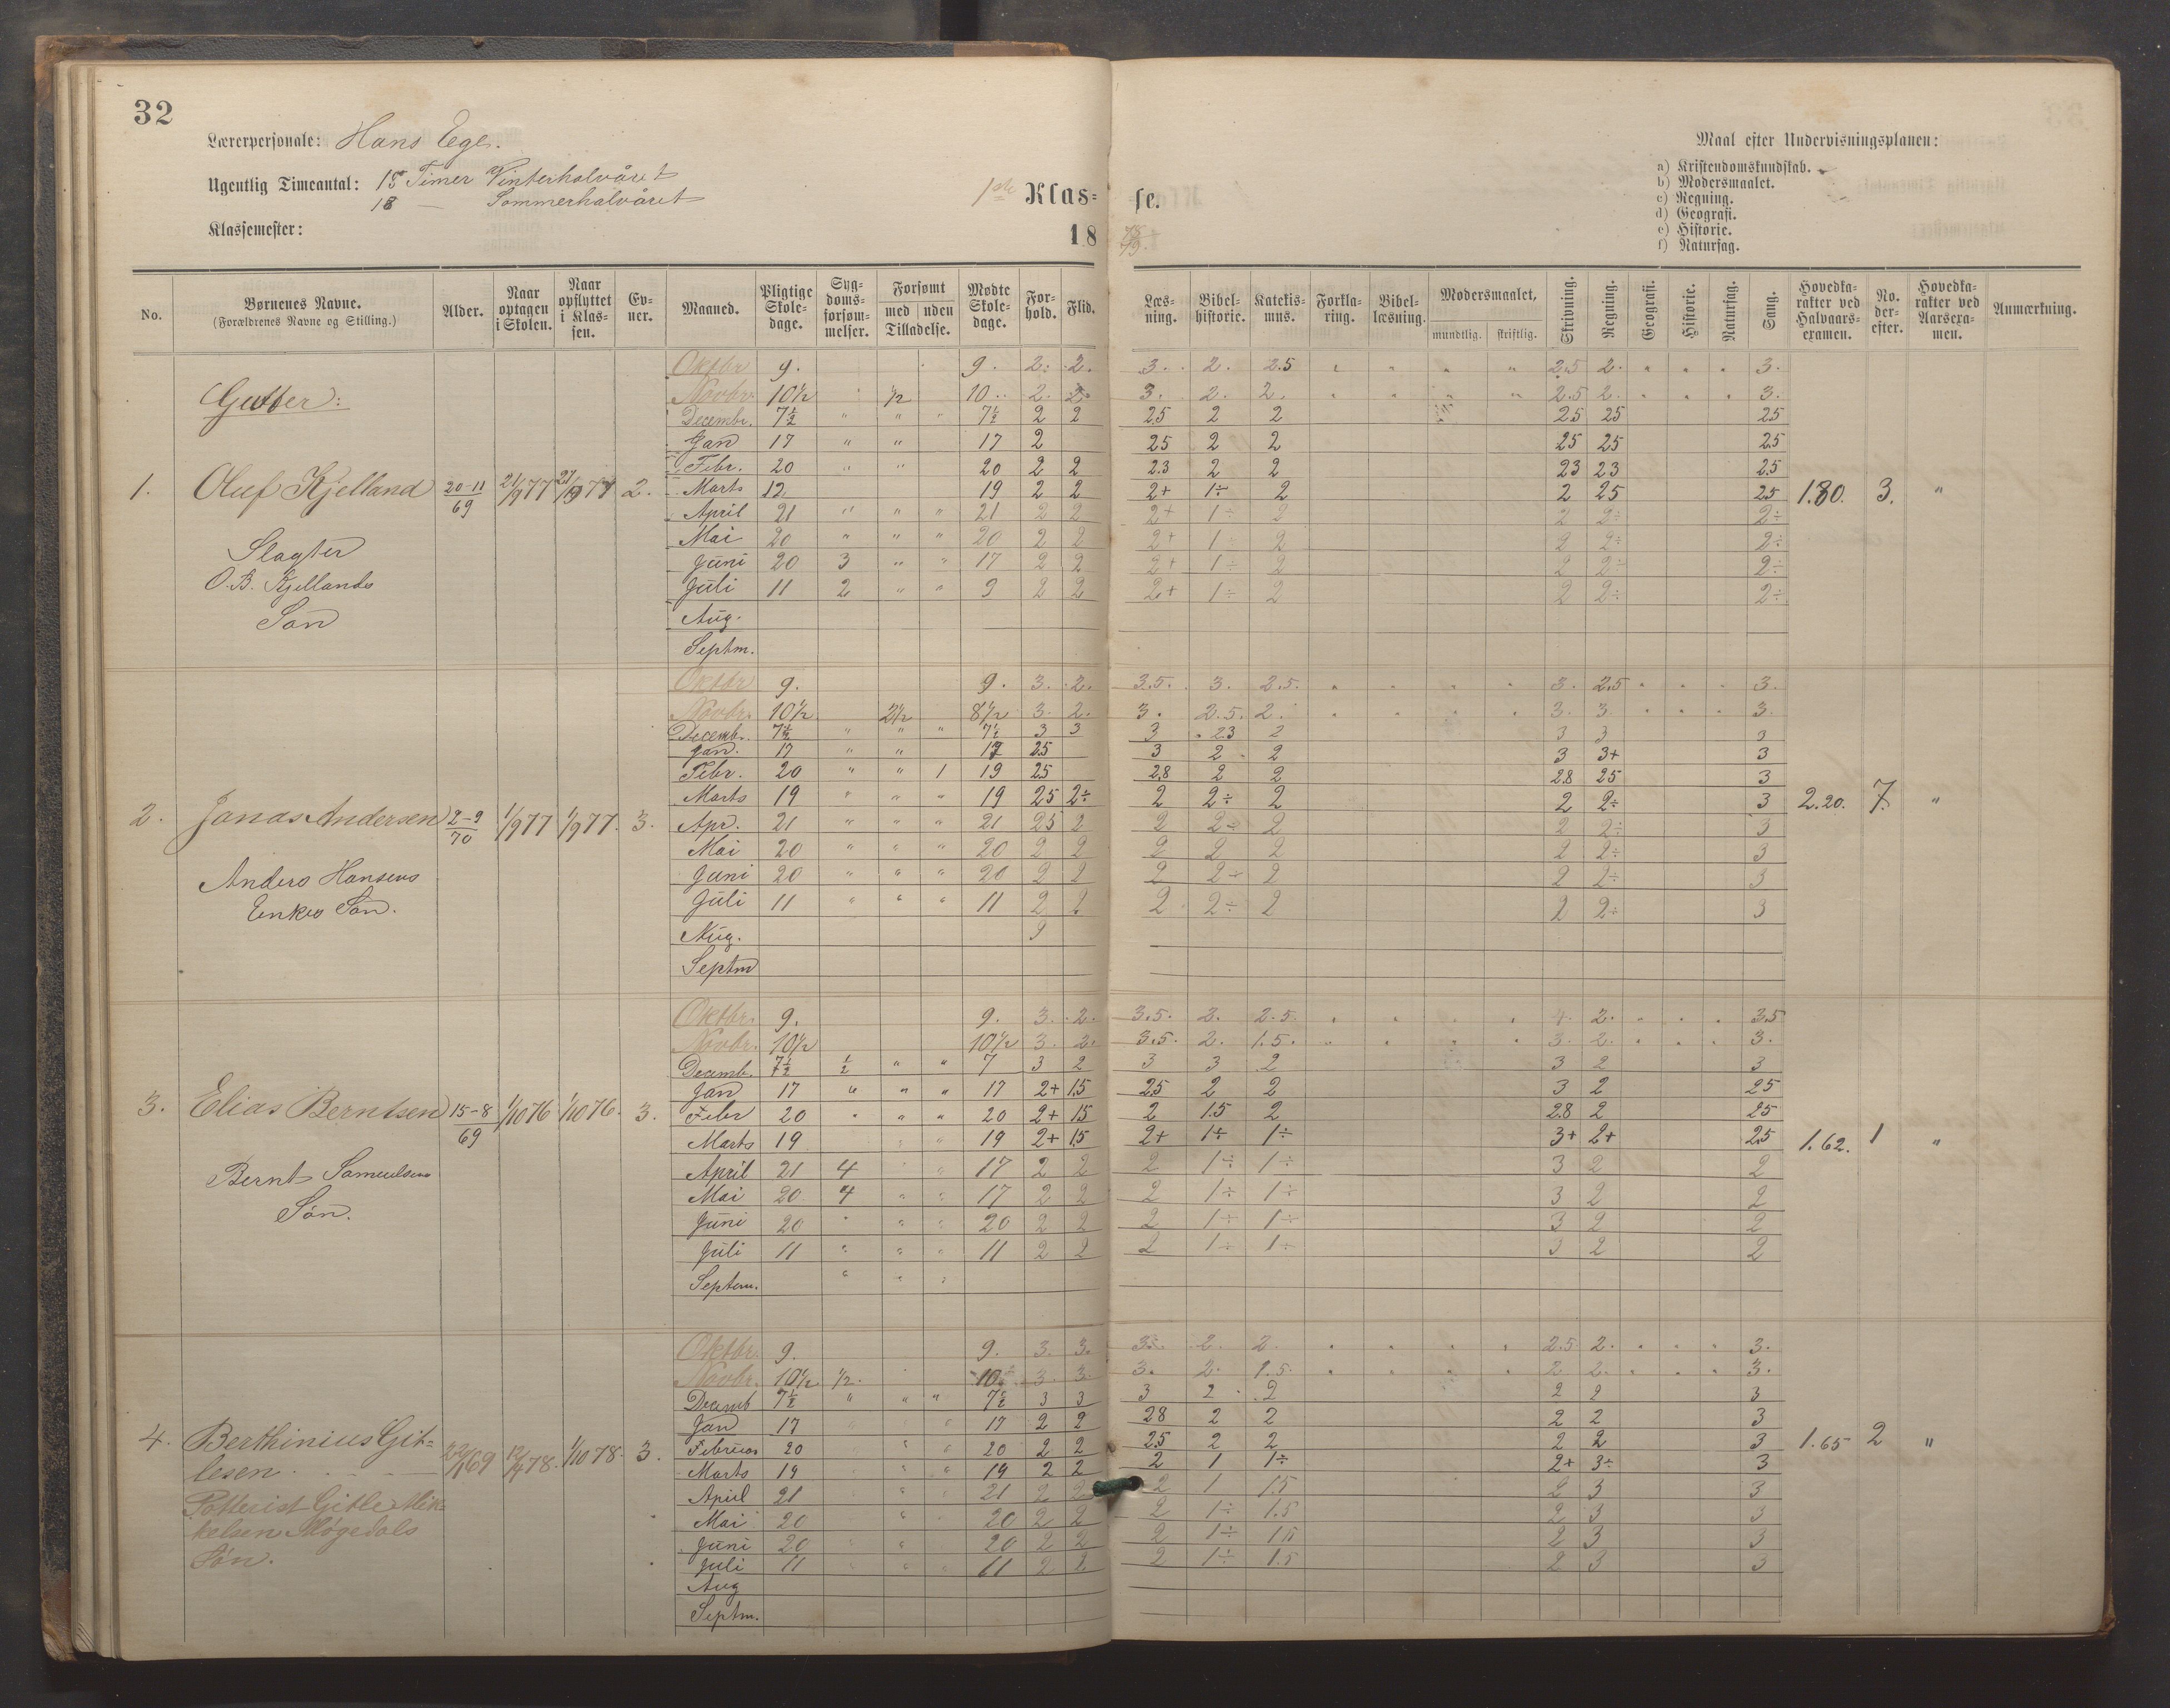 32
Lærerpersonale: Hans Ege.
Ugentlig Timeantal: 15 Timer Vinterhalvåret
18 — Sommerhalvåret
Klassemester:
1ste Klas= se.
18 78/79.
Maal efter Undervisningsplanen:
a) Kristendomskundskab.
b) Modersmaalet.
c) Regning.
d) Geografi.
e) Historie.
f) Naturfag.
No. | Børnenes Navne. (Forældrenes Navne og Stilling.) | Alder. | Naar optagen i Skolen. | Naar opflyttet i Klas-sen. | Ev-ner. | Maaned. | Pligtige Skole-dage. | Syg-doms-forsøm-melser. | Forsømt med uden Tilladelse. | Mødte Skole-dage. | For-hold. | Flid. | Læs-ning. | Bibel-historie. | Katekis-mus. | Forkla-ring. | Bibel-læsning. | Modersmaalet, mundtlig. skriftlig. | Skrivning. | Regning. | Geografi. | Historie. | Naturfag. | Sang. | Hovedka-rakter ved Halvaars-examen. | No. der-efter. | Hovedka-rakter ved Aarsexa-men. | Anmærkning.
Gutter:
Oktbr 9. 9. 2. 2. 3. 2. 2.5 " " " " 2.5 2. " " " 3.
Novbr. 10½ ½ 10. 2. 2. 3. 2. 2. " " " " 2.5 2. " " " 3.
Decembr. 7½ " " " 7½ 2 2 25 2 2 25 25 25
Jan 17 " " 17 2 25 2 2 25 25 25
Febr. 20 " " 20 2 2 23 2 2 23 23 25
1. Oluf Kjelland 20-11/69 21/9 77 2. Marts 12 19 2 2 2+ 1÷ 2 2 25 25 1.80. 3. "
April 21 " " " 21 2 2 2+ 1÷ 2 2 2÷ 2÷
Slagter Mai 20 " " " 20 2 2 2+ 1÷ 2 2 2÷ 2÷
O.B. Kjellands Juni 20 3 " " 17 2 2 2+ 1÷ 2 2 2÷ 2÷
Søn Juli 11 2 " " 9 2 2 2+ 1÷ 2 2 2÷ 2÷
Aug.
Septm.
Oktbr 9. 9. 3. 2. 3.5. 3. 2.5. " " " " 3. 2.5 " " " 3.
Novbr. 10½ 2½ 8½ 3. 2. 3. 2.5. 2. " " " " 3. 3. " " " 3.
Decembr. 7½ " " " 7½ 3 3 3 23 2 3 3 3
Jan. 17 " " 17 25 3 2 2 3 3+ 3
Febr. 20 " " 1 19 25 28 2 2 28 25 3
Marts 19 " " " 19 25 2÷ 2 2÷ 2 2 2÷ 3
2. Jonas Andersen 2-9/70 1/9 77 1/9 77. 3. Apr. 21 " " " 21 25 2 2 2÷ 2 2 2÷ 3 2.20. 7. "
Mai 20 " " " 20 2 2 2 2 2 2 2÷ 3
Anders Hansens Juni 20 " " " 20 2 2 2 2÷ 2 2 2÷ 3
Enkes Søn. Juli 11 " " " 11 2 2 2 2÷ 2 2 2÷ 3
Aug. 9
Septm
Oktbr. 9. 9. 3. 2. 3.5. 2. 2.5. " " " " 4. 2. " " " 3.5
Novbr. 10½ 10½ 3. 2. 3.5. 2. 1.5. " " " " 3. 2. " " " 3.
Decemb. 7½ ½ " " 7 3 2 3 3 2 3 2 3
Jan 17 " " " 17 2+ 15 25 2 2 3 2 25
3. Elias Berntsen 15-8/69 1/10 76 1/10 76. 3. Febr 20 " " " 20 2+ 15 2 1.5 2 28 2 25
Marts 19 " " 19 2+ 15 2+ 1÷ 1÷ 3+ 2+ 25 1.62. 1 "
Bernt Samuelsens April 21 4 " " 17 2 2 2 1÷ 1÷ 3 2 2
Søn. Mai 20 4 " " 17 2 2 2 1÷ 1÷ 3 2 2
Juni 20 " " " 20 2 2 2 1÷ 1÷ 3 2 2
Juli 11 " " " 11 2 2 2 1÷ 1÷ 3 2 2
Septem. " " "
Oktbr. 9. 9. 3. 3. 3. 2. 2. " " " " 2.5 2. " " " 3.
Novbr. 10½ ½. 10. 3. 3. 3. 2. 1.5. " " " " 2 2. " " " 3.
Decemb 7½ " " " 7½ 3 3 3 2 2 2 2 3
Jan 17 " " " 17 2 2 28 2 2 2 2 3
4. Berthinius Git= 22/1 69 12/4 78. 1/10 78. 3. Februar 20 " " 20 2 2 25 2 2 2 2 3 1.65 2 "
lesen. Marts 19 " " 19 2 2 2 1 1÷ 2+ 3÷ 3
Potterist Gitle Mik= April 21 " " 21 2 2 2 1 1.5 2 3 3
kelsen Møgedals Mai 20 " 20 2 2 2 1÷ 1.5 2 3 3
Søn. Juni 20 " 20 2 2 2 1÷ 1.5 2 3 3
Juli 11 " " 11 2 2 2 1÷ 1.5 2 3 3
Aug
Septm.